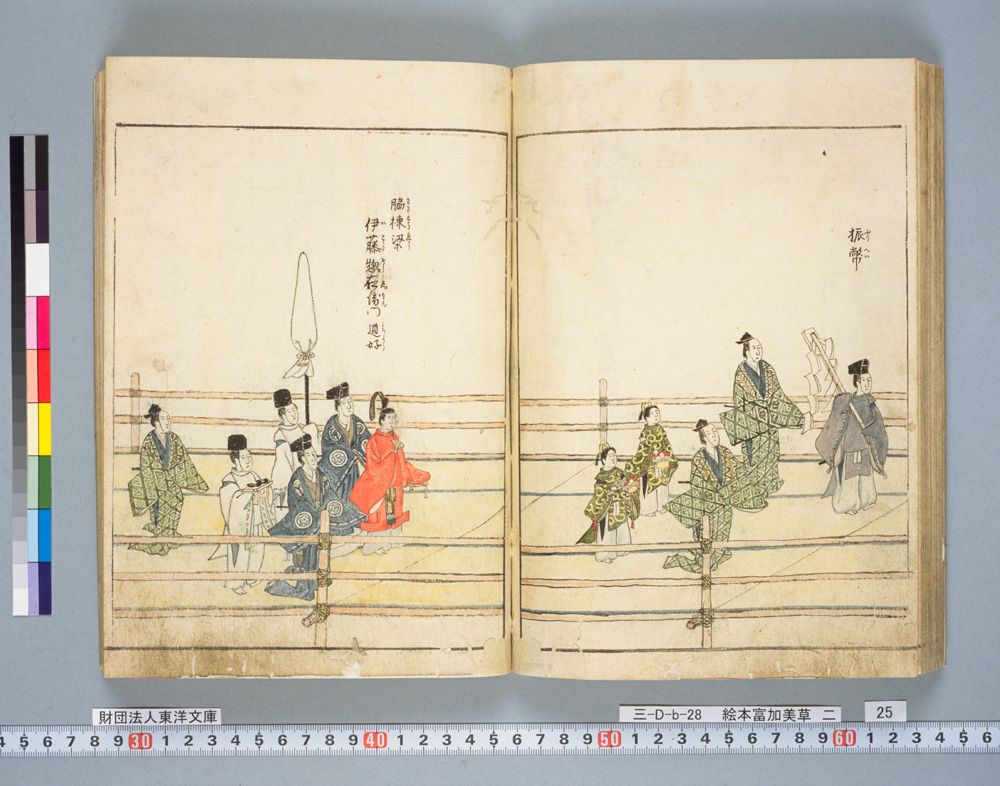 振幣
脇棟梁
伊藤惣右衛門 道好
財団法人東洋文庫
三-D-b-28 絵本富加美草 二
25
4 5 6 7 8 9 30 1 2 3 4 5 6 7 8 9 40 1 2 3 4 5 6 7 8 9 50 1 2 3 4 5 6 7 8 9 60 1 2 3 4 5 6